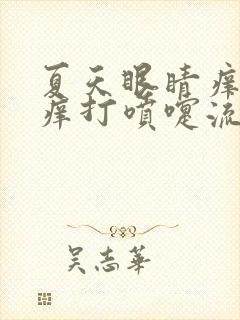 夏天眼睛痒
痒打喷嚏流
吴志华